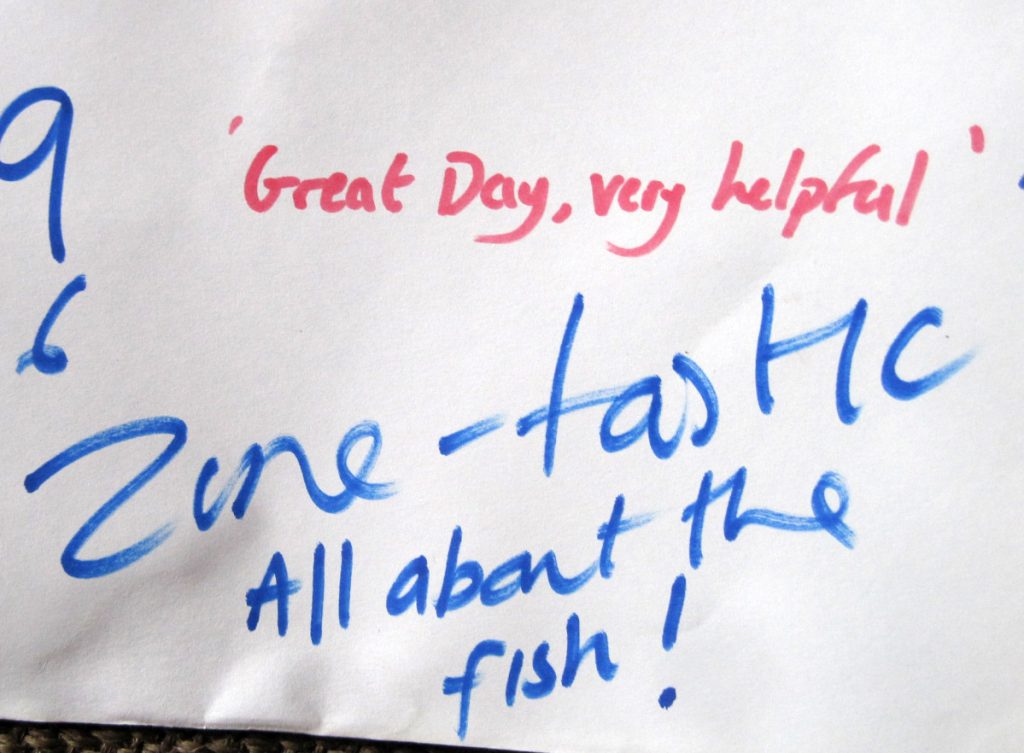 9
'Great Day, very helpful'
6
Zone-tastic
All about the
fish!